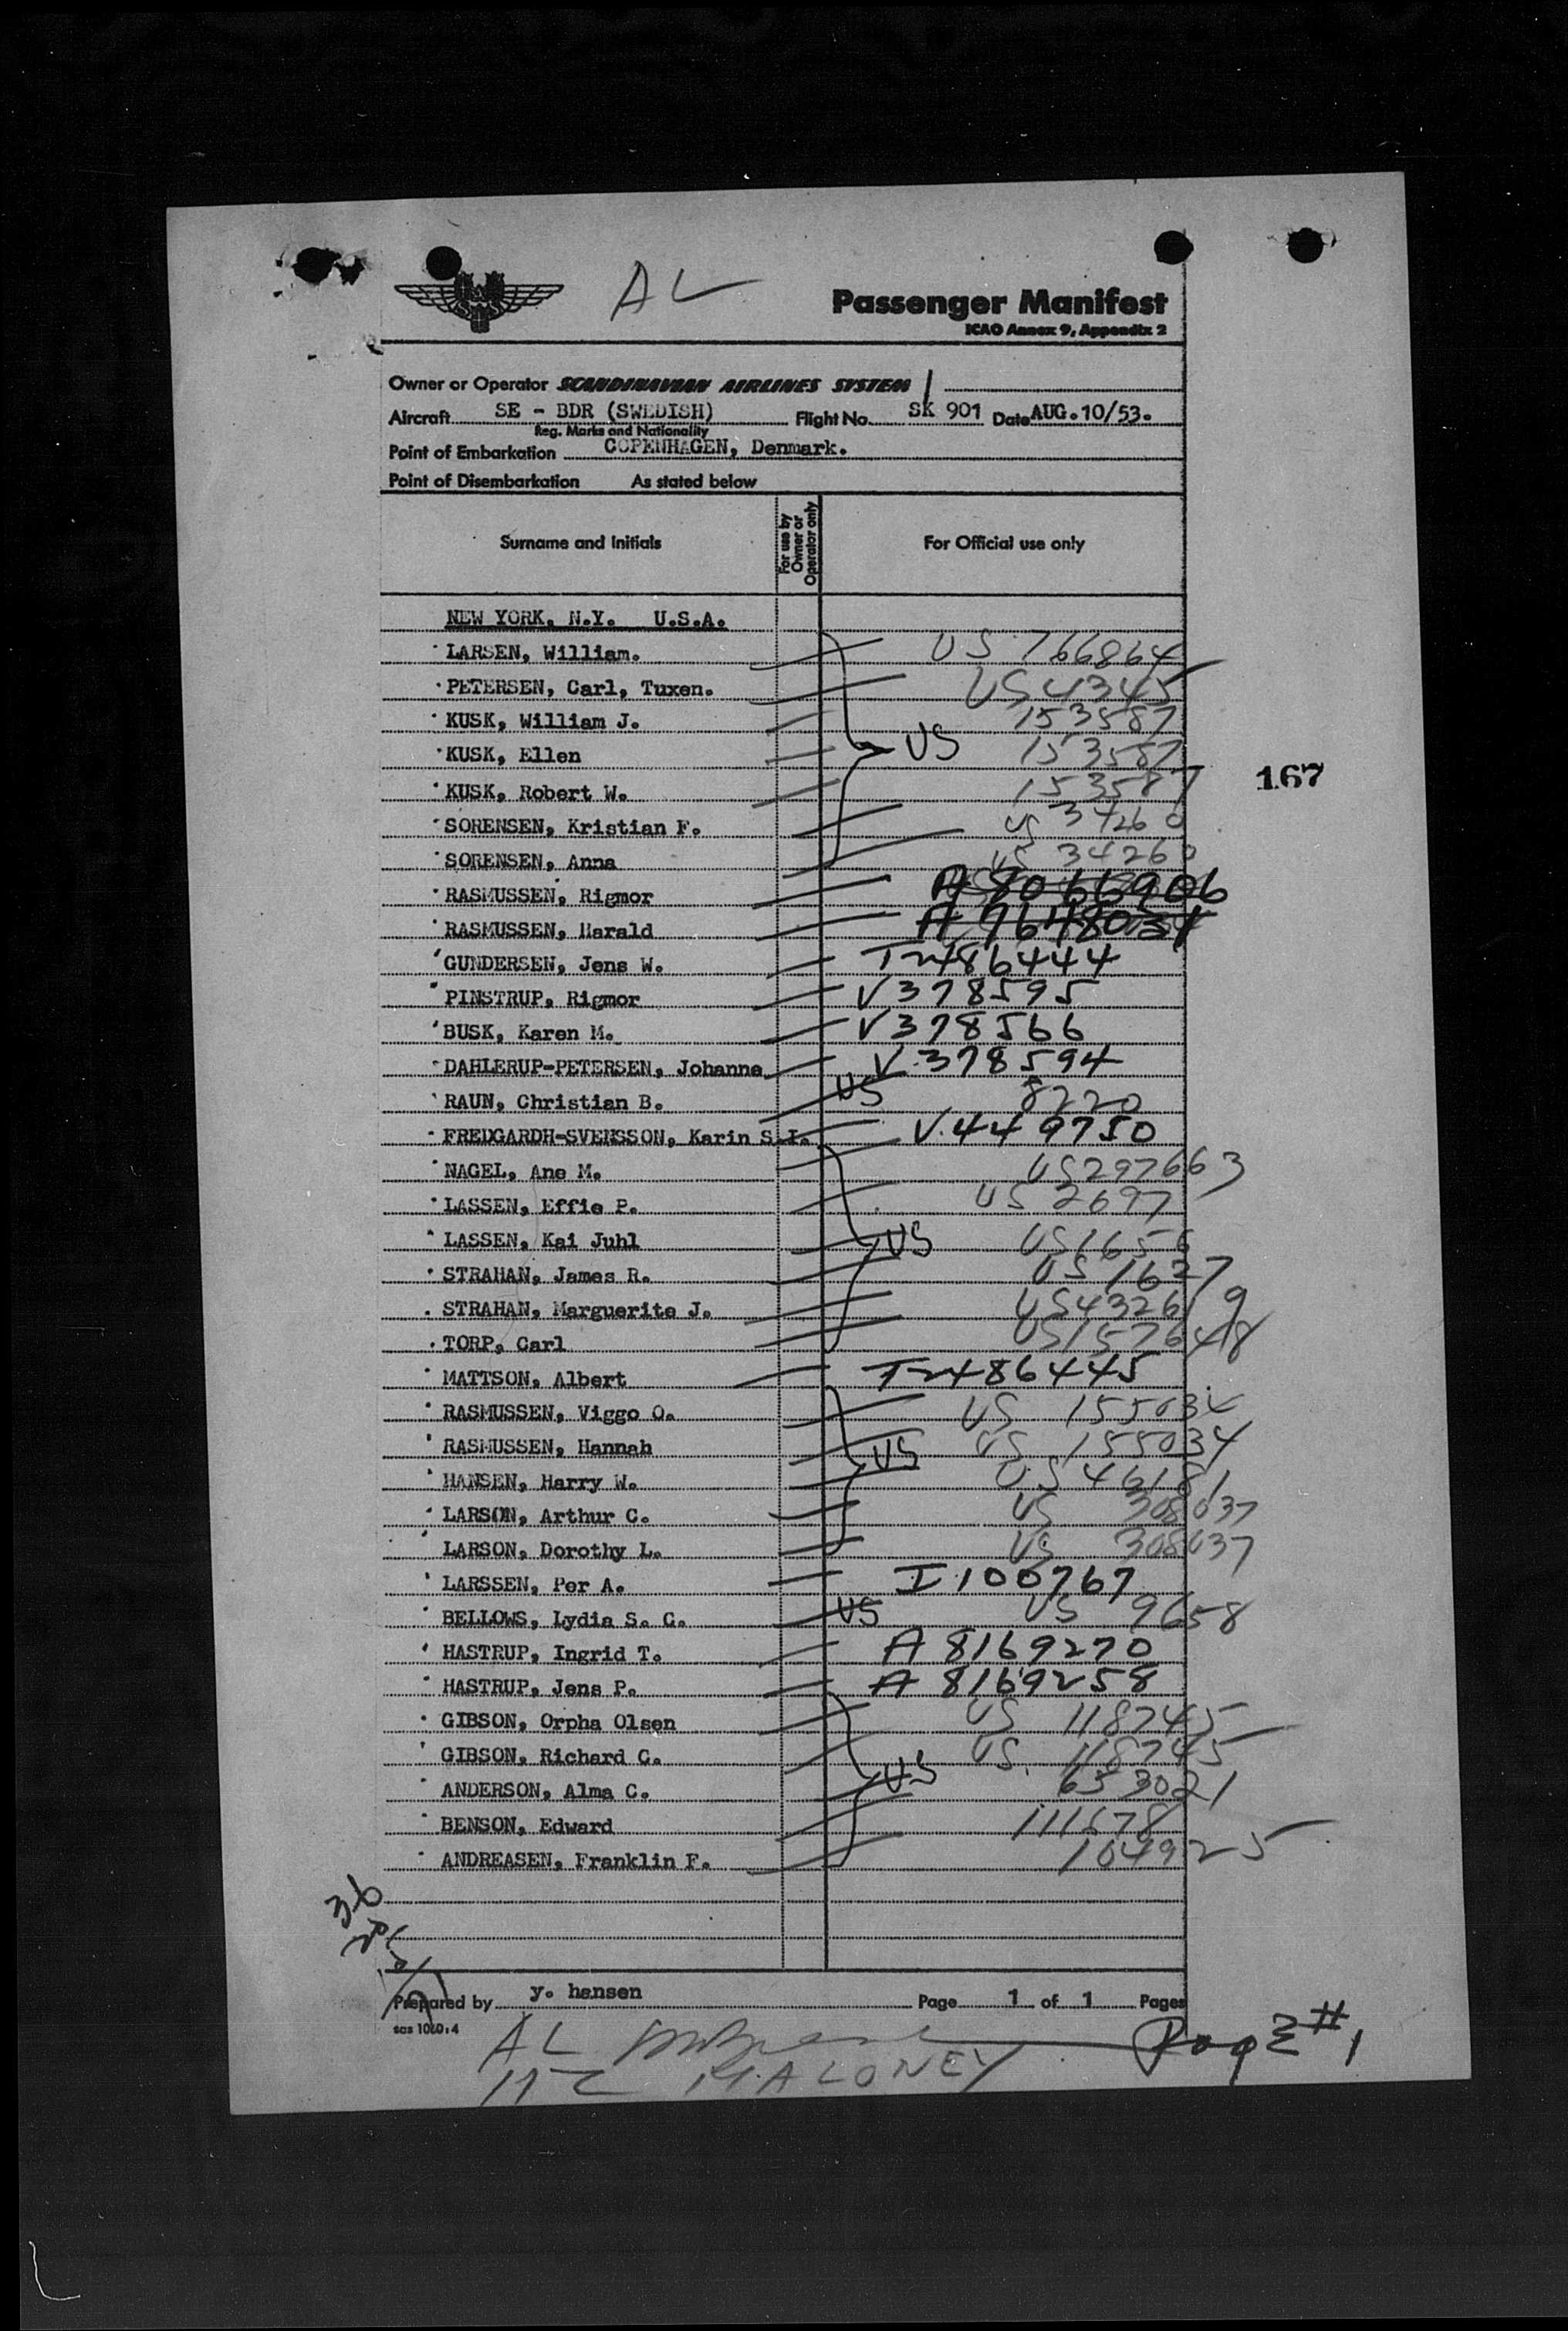 AL
Passenger Manifest
ICAO Annex 9, Appendix 2
Owner or Operator SCANDINAVIAN AIRLINES SYSTEM
Aircraft SE - BDR (SWEDISH) Flight No. SK 901 Date AUG. 10/53.
Reg. Marks and Nationality
Point of Embarkation COPENHAGEN, Denmark.
Point of Disembarkation As stated below
Surname and Initials For use by Owner or Operator only For Official use only
NEW YORK, N.Y. U.S.A.
LARSEN, William. US 766864
PETERSEN, Carl, Tuxen. US 4345
KUSK, William J. 153587
KUSK, Ellen US 153587
167
KUSK, Robert W. 153587
SORENSEN, Kristian F. US 34260
SORENSEN, Anna US 34260
RASMUSSEN, Rigmor A 8066906
RASMUSSEN, Harald A
GUNDERSEN, Jens W. T2486444
PINSTRUP, Rigmor V378595
BUSK, Karen M. V378566
DAHLERUP-PETERSEN, Johanne V.378594
RAUN, Christian B. US 8220
FREDGARDH-SVENSSON, Karin S.I. V.449750
NAGEL, Ane M. US 297663
LASSEN, Effie P. US 2697
LASSEN, Kai Juhl US US 1656
STRAHAN, James R. US 1627
STRAHAN, Marguerite J. US 432619
TORP, Carl US 157648
MATTSON, Albert T2486445
RASMUSSEN, Viggo O. US 155034
RASMUSSEN, Hannah US US 155034
HANSEN, Harry W. US 46181
LARSON, Arthur C. US 308037
LARSON, Dorothy L. US 308037
LARSSEN, Per A. I 100767
BELLOWS, Lydia S. C. US US 9658
HASTRUP, Ingrid T. A 8169270
HASTRUP, Jens P. A 8169258
GIBSON, Orpha Olsen US 118745
GIBSON, Richard C. US 118745
ANDERSON, Alma C. US 653021
BENSON, Edward 111678
ANDREASEN, Franklin F. 104925
36
Prepared by y. hansen Page 1 of 1 Pages
sas 1060:4
AL
MALONEY
Page #1